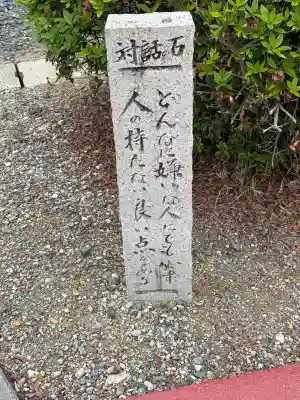 対話石
どんなに嫌いな人にでも等
人の持たない良い点がある